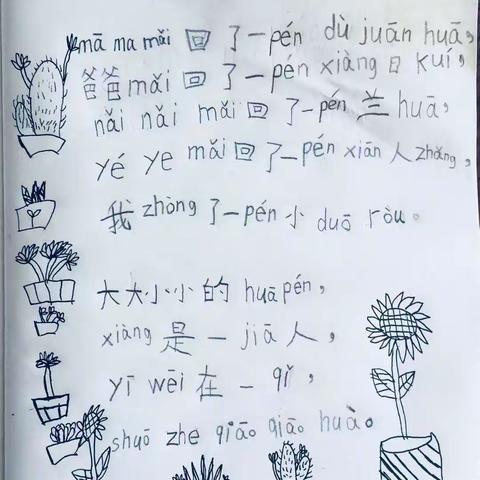 mā ma mǎi 回了一pén dù juān huā，
爸爸mǎi 回了一pén xiàng日kuí，
nǎi nǎi mǎi 回了一pén 兰huā，
yé ye mǎi回了一pén xiān人zhǎng，
我zhòng了一pén小 duō ròu。
大大小小的 huā pén，
xiàng 是一 jiā 人，
yī wēi 在一 qǐ，
shuō zhe qiāo qiāo huà。